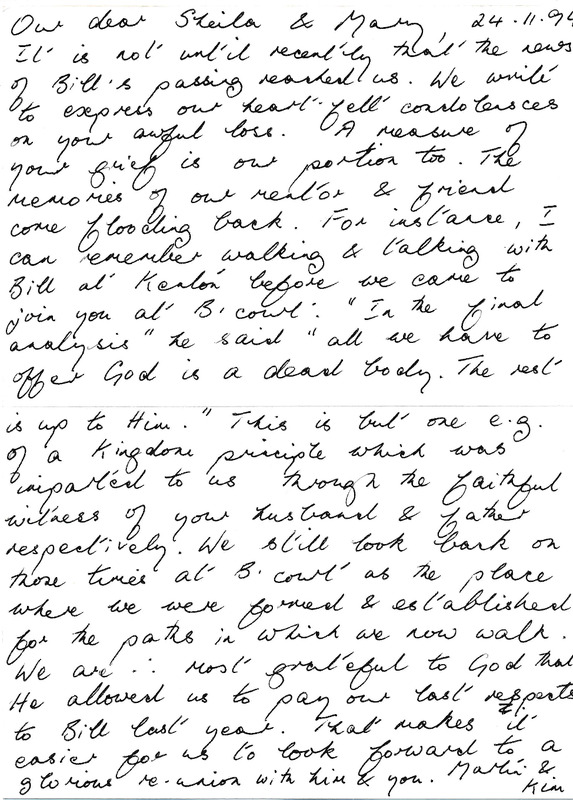 Our dear Sheila & Mary, 24.11.94
It is not until recently that the news
of Bill's passing reached us. We write
to express our heart-felt condolences
on your awful loss. A measure of
your grief is our portion too. The
memories of our mentor & friend
come flooding back. For instance, I
can remember walking & talking with
Bill at Kenton before we came to
join you at B. court. "In the final
analysis" he said "all we have to
offer God is a dead body. The rest
is up to Him." This is but one e.g.
of a Kingdom principle which was
imparted to us through the faithful
witness of your husband & father
respectively. We still look back on
those times at B. court as the place
where we were formed & established
for the paths in which we now walk.
We are ∴ most grateful to God that
He allowed us to pay our last respects
to Bill last year. That makes it
easier for us to look forward to a
glorious re-union with him & you. Martin &
Kim